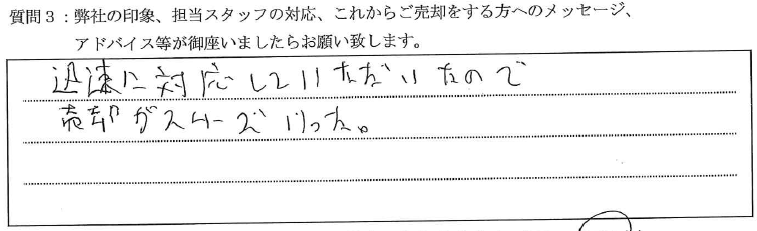 質問３：弊社の印象、担当スタッフの対応、これからご売却をする方へのメッセージ、
アドバイス等が御座いましたらお願い致します。
迅速に対応していただいたので
売却がスムーズにいった。